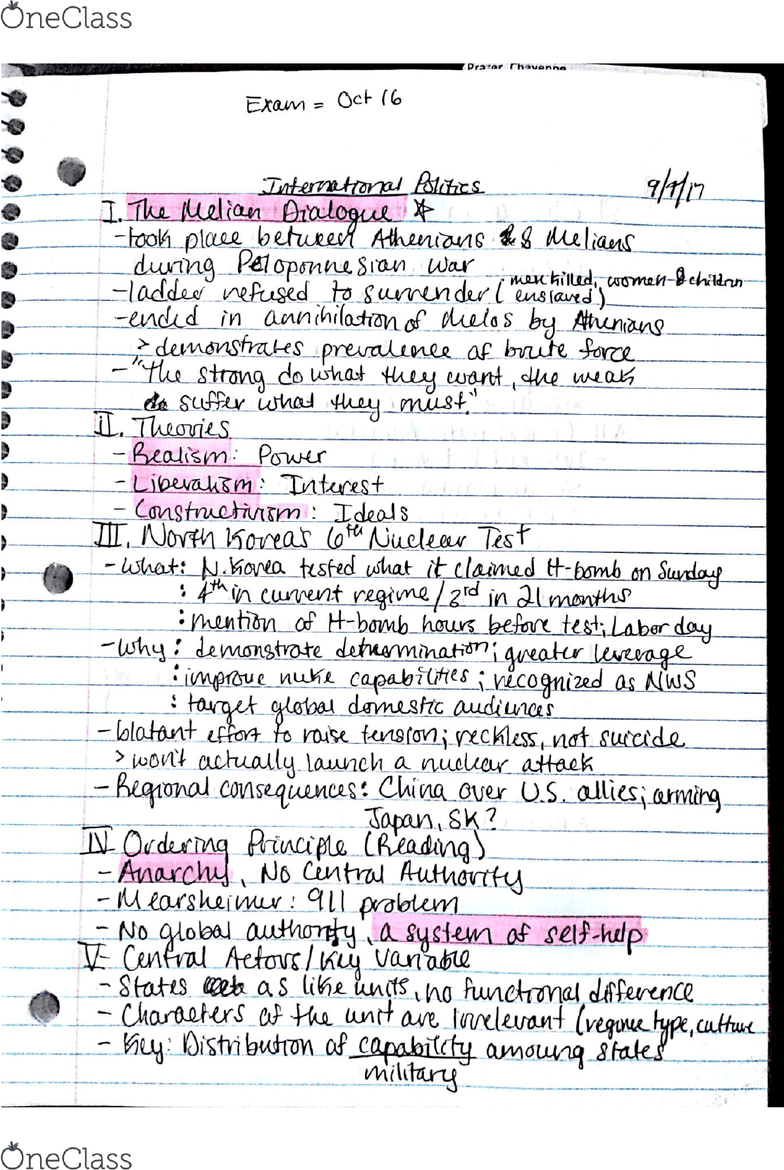 OneClass
Prater Cheyenne
Exam = Oct 16
International Politics
I. The Melian Dialogue ☆
-took place between Athenians & 8 Melians
during Peloponnesian War
-ladder refused to surrender (men killed, women & children
enslaved)
-ended in annihilation of Melos by Athenians
> demonstrates prevalence of brute force
-"The strong do what they want, the weak
do suffer what they must."
II. Theories
- Realism: Power
- Liberalism: Interest
- Constructivism: Ideals
III. North Korea's 6th Nuclear Test
-What: N. Korea tested what it claimed H-bomb on Sunday
: 4th in current regime/3rd in 21 months
: mention of H-bomb hours before test; Labor day
-Why: demonstrate determination; greater leverage
: improve nuke capabilities; recognized as NWS
: target global domestic audiences
-blatant effort to raise tension; reckless, not suicide
> won't actually launch a nuclear attack
- Regional consequences: China over U.S. allies; arming
Japan, SK?
IV Ordering Principle (Reading)
- Anarchy, No Central Authority
- Mearsheimer: 911 problem
- No global authority, a system of self-help
V- Central Actors/Key Variable
- States as like units, no functional difference
- Characters of the unit are irrelevant (regime type, culture
- Key: Distribution of capability amoung states
military
OneClass